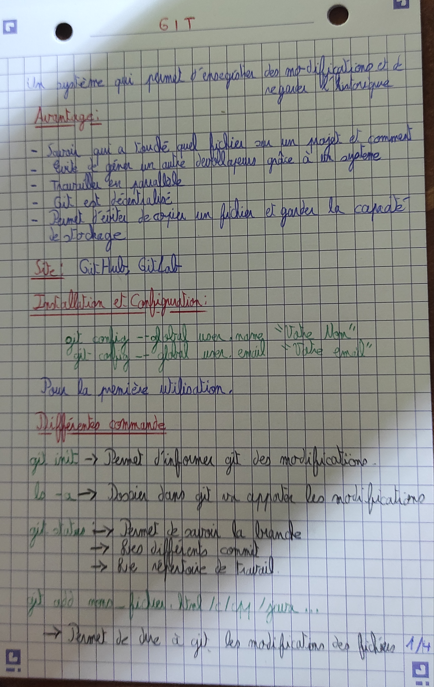 GIT
Un système qui permet d'enregistrer des modifications et de
regarder l'historique
Avantage:
- Savoir qui a touché quel fichier sur un projet et comment
- un autre développeurs grâce à un système
- Travailler en parallèle
- Git est décentralisé
- Permet d'éviter de copier un fichier et garder la capacité
de stockage
Site: GitHub, GitLab
Installation et Configuration:
git config --global user.name "Votre Nom"
git config --global user.email "Votre email"
Pour la première utilisation.
Différentes commande
git init → Permet d'informer git des modifications.
ls -a → Dossier dans git les modifications
git status → Permet de savoir la branche
→ différents commit
→ répertoire de travail
git add mon_fichier.html /c/cpp/java...
→ Permet de dire à git les modifications des fichiers 1/4